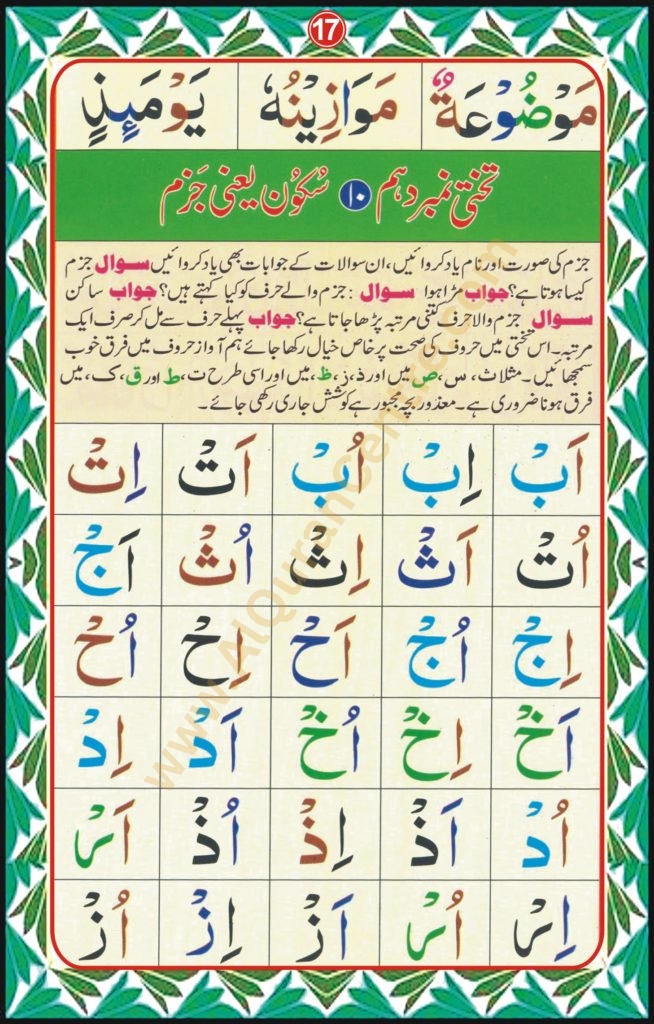 17
مَوْضُوْعَةٌ مَوَازِيْنُهٗ يَوْمَئِذٍ
تختی نمبر دہم ۱۰ سُکُون یعنی جَزم
جزم کی صورت اور نام یاد کروائیں، ان سوالات کے جوابات بھی یاد کروائیں سوال جزم
کیسا ہوتا ہے؟ جواب مڑا ہوا سوال : جزم والے حرف کو کیا کہتے ہیں؟ جواب ساکن
سوال جزم والا حرف کتنی مرتبہ پڑھا جاتا ہے؟ جواب پہلے حرف سے مل کر صرف ایک
مرتبہ۔ اس تختی میں حروف کی صحت پر خاص خیال رکھا جائے ہم آواز حروف میں فرق خوب
سمجھائیں۔ مثلا ث، س، ص میں اور ذ، ز، ظ، میں اور اسی طرح ت، ط اور ق، ک، میں
فرق ہونا ضروری ہے۔ معذور بچہ مجبور ہے کوشش جاری رکھی جائے۔
اَبْ اِبْ اُبْ اَتْ اِتْ
اُتْ اَثْ اِثْ اُثْ اَجْ
اِجْ اُجْ اَحْ اِحْ اُحْ
اَخْ اِخْ اُخْ اَدْ اِدْ
اُدْ اَذْ اِذْ اُذْ اَرْ
اِرْ اُرْ اَزْ اِزْ اُزْ
www.AlQuranCentre.com